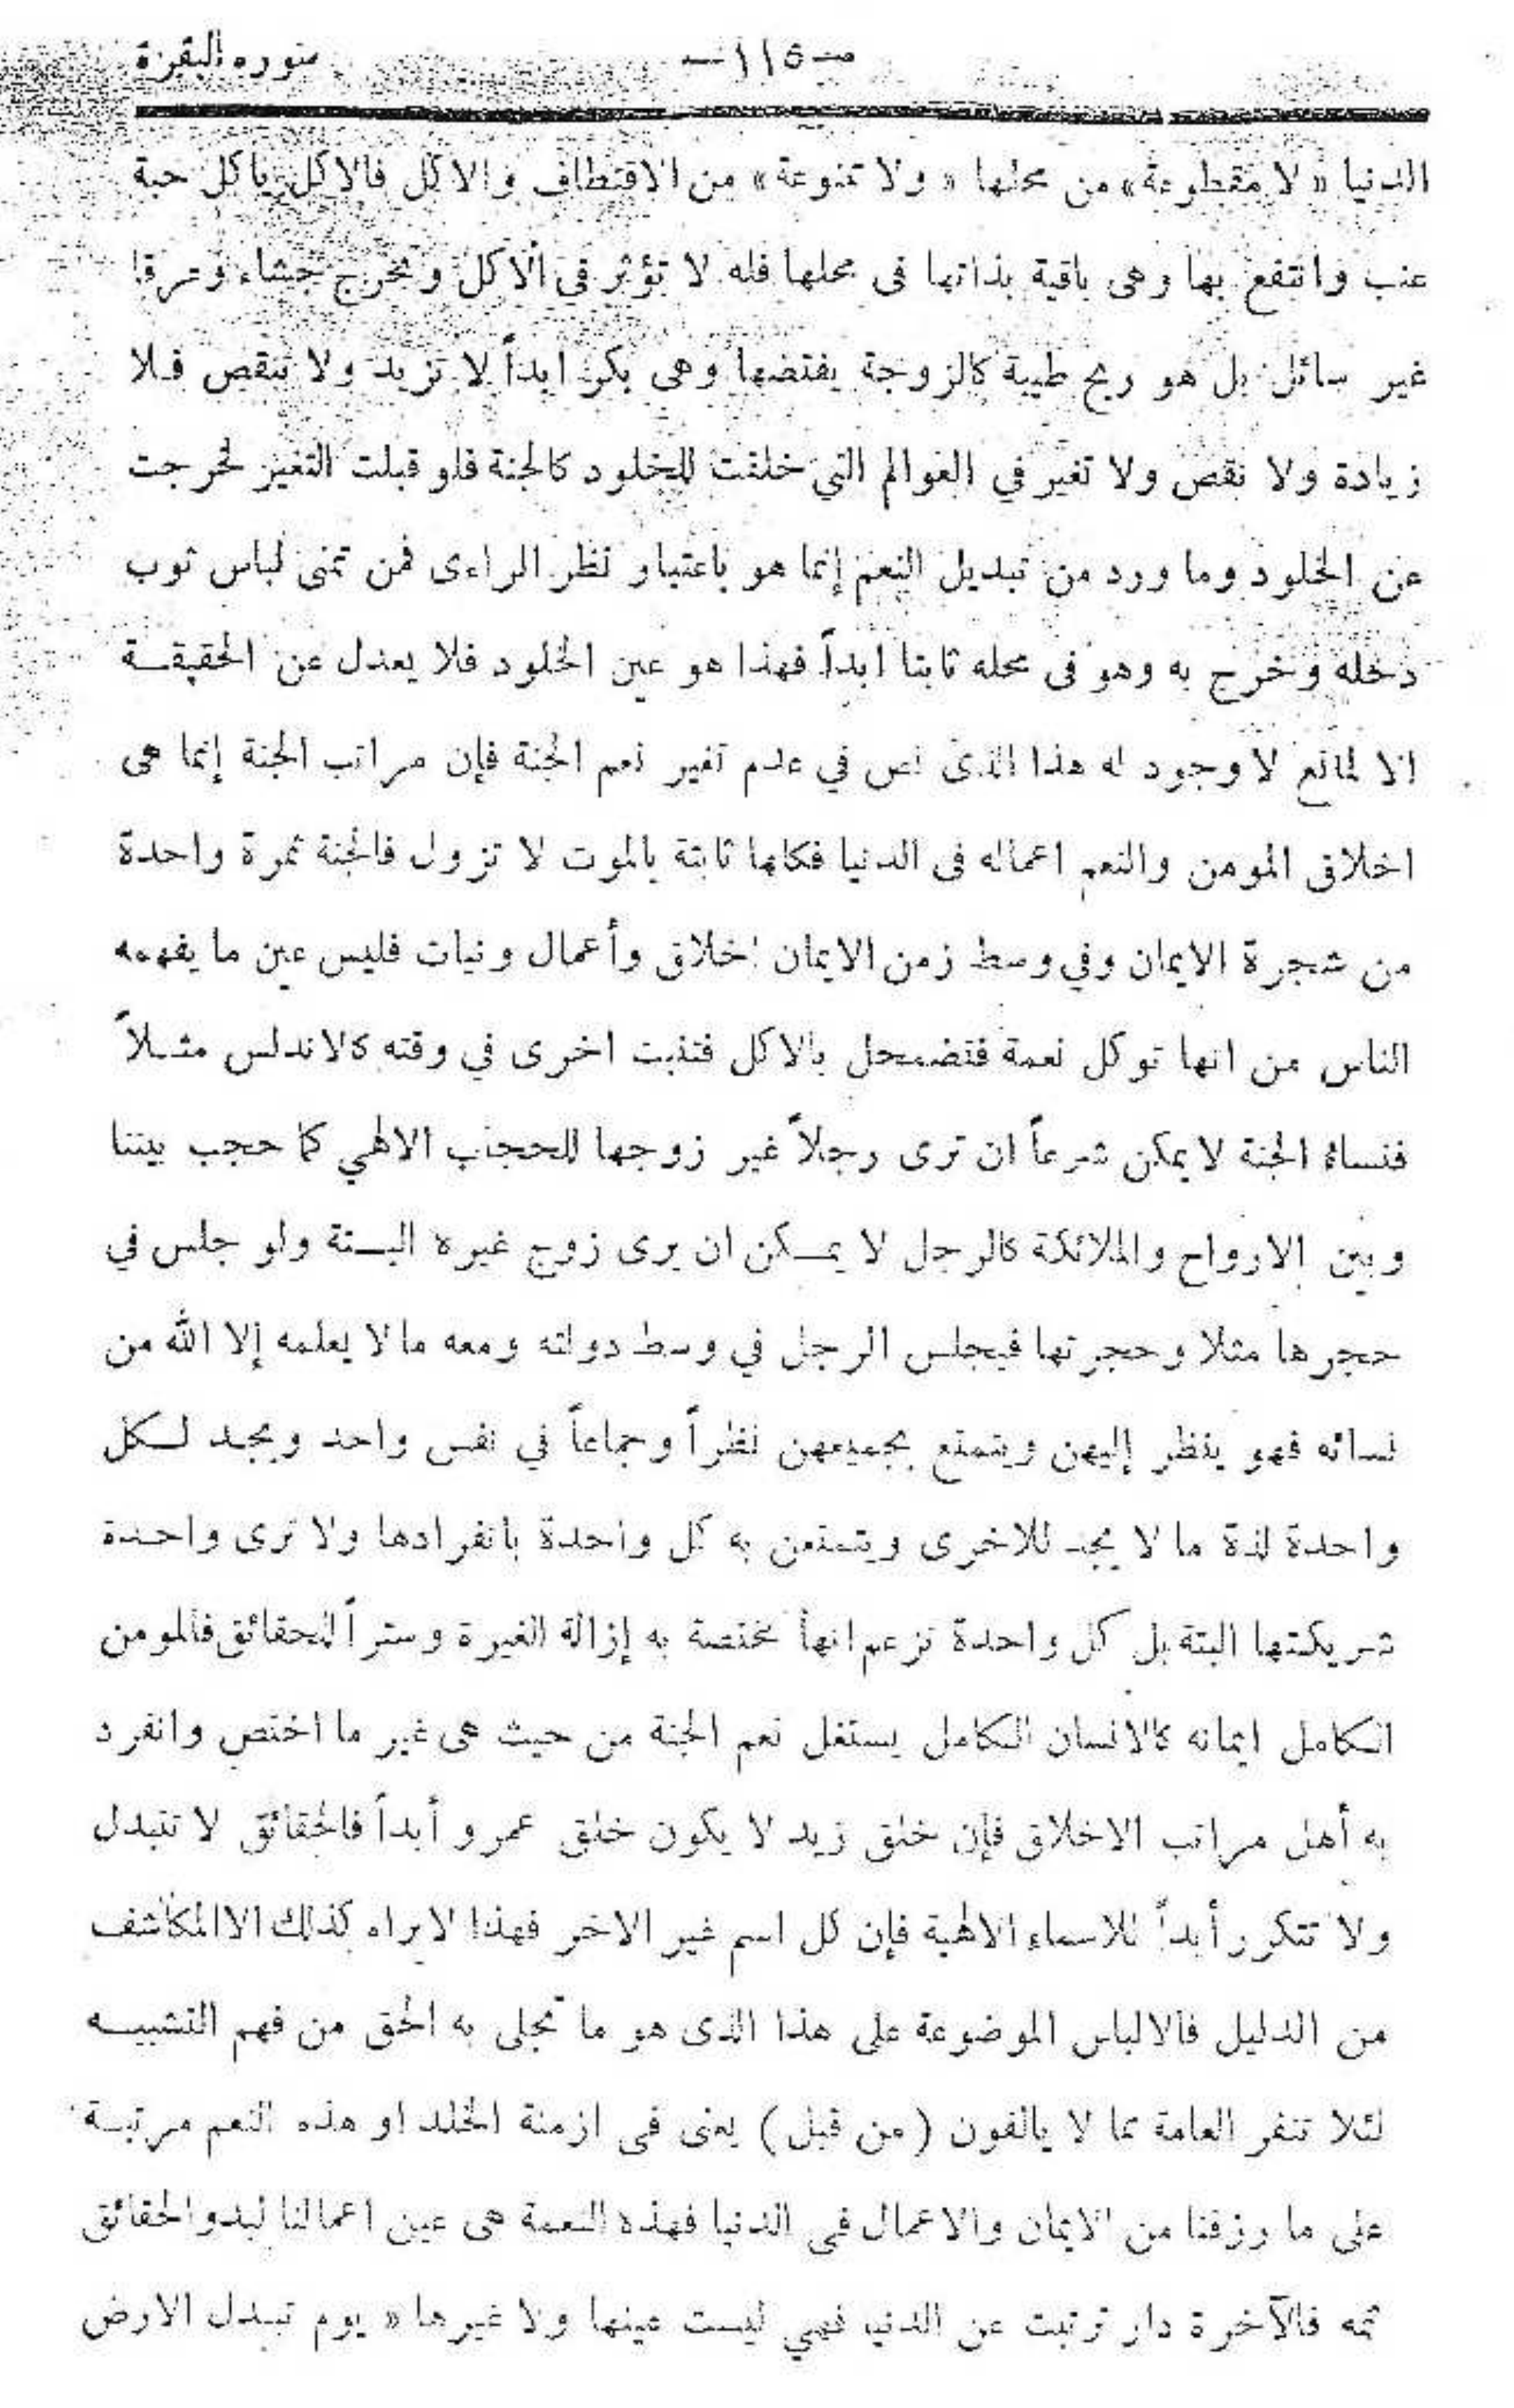 سورة البقرة —١١٥—
الدنيا « لا مقطوعة » من محلها « ولا ممنوعة » من الاقتطاف والاكل فالاكل ياكل حبة
عنب وانتفع بها وهى باقية بذاتها فى محلها فله لا تؤثر في الأكل وتخرج جشاء وعرقا
غير سائل بل هو ريح طيبة كالزوجة يفتضها وهى بكر ابداً لا تزيد ولا تنقص فلا
زيادة ولا نقص ولا تغير في العوالم التي خلقت للخلود كالجنة فلو قبلت التغير لخرجت
عن الخلود وما ورد من تبديل النعم إنما هو باعتبار نظر الراءى فمن تمنى لباس ثوب
دخله وخرج به وهو فى محله ثابتا ابداً فهذا هو عين الخلود فلا يعدل عن الحقيقة
الا لمانع لا وجود له هذا الذى نص في عدم تغير نعم الجنة فإن مراتب الجنة إنما هى
اخلاق المومن والنعم اعماله فى الدنيا فكلها ثابتة بالموت لا تزول فالجنة ثمرة واحدة
من شجرة الايمان وفي وسط زمن الايمان اخلاق وأعمال ونيات فليس عين ما يفهمه
الناس من انها توكل نعمة فتضمحل بالاكل فتنبت اخرى في وقته كالاندلس مثلاً
فنساء الجنة لا يمكن شرعاً ان ترى رجلاً غير زوجها للحجاب الالهي كما حجب بيننا
وبين الارواح والملائكة كالرجل لا يمكن ان يرى زوج غيره البتة ولو جلس في
حجرها مثلا وحجرتها فيجلس الرجل في وسط دولته ومعه ما لا يعلمه إلا الله من
نسائه فهو ينظر إليهن ويتمتع بجميعهن نظراً وجماعاً في نفس واحد ويجد لكل
واحدة لذة ما لا يجد للاخرى ويتمتعن به كل واحدة بانفرادها ولا ترى واحدة
شريكتها البتة بل كل واحدة تزعم انها مختصة به إزالة الغيرة وستراً للحقائق فالمومن
الكامل ايمانه كالانسان الكامل يستغل نعم الجنة من حيث هى غير ما اختص وانفرد
به أهل مراتب الاخلاق فإن خلق زيد لا يكون خلق عمرو أبداً فالحقائق لا تتبدل
ولا تتكرر أبداً للاسماء الالهية فإن كل اسم غير الاخر فهذا لا يراه كذلك الا المكاشف
من الدليل فالالباس الموضوعة على هذا الذى هو ما تجلى به الحق من فهم التشبيه
لئلا تنفر العامة مما لا يالفون ( من قبل ) يعنى فى ازمنة الخلد او هذه النعم مرتبة
على ما رزقنا من الايمان والاعمال فى الدنيا فهذه النعمة هى عين اعمالنا لبدو الحقائق
ثمه فالآخرة دار ترتبت عن الدنيا فهي ليست عينها ولا غيرها « يوم تبدل الارض